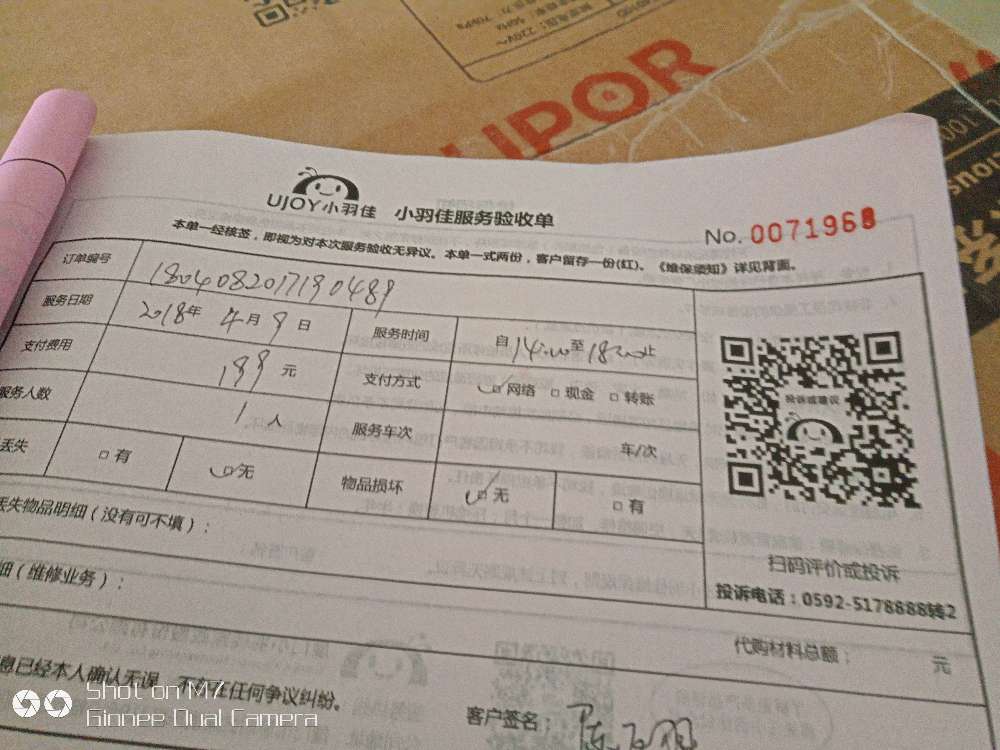 UPOR
UJOY小羽佳 小羽佳服务验收单
No. 0071968
本单一经核签，即视为对本次服务验收无异议。本单一式两份，客户留存一份(红)。《维保须知》详见背面。
订单编号 1804082017190489
服务日期 2018年 4月 9日 服务时间 自14:00至18:00止
支付费用 199 元 支付方式 □网络 □现金 □转账
服务人数 1 人 服务车次 车/次
丢失 □有 □无 物品损坏 □无 □有
丢失物品明细（没有可不填）：
细（维修业务）：
投诉或建议
扫码评价或投诉
投诉电话：0592-5178888转2
代购材料总额： 元
息已经本人确认无误，不存在任何争议纠纷。
客户签名：
Shot on M7
Gionee Dual Camera